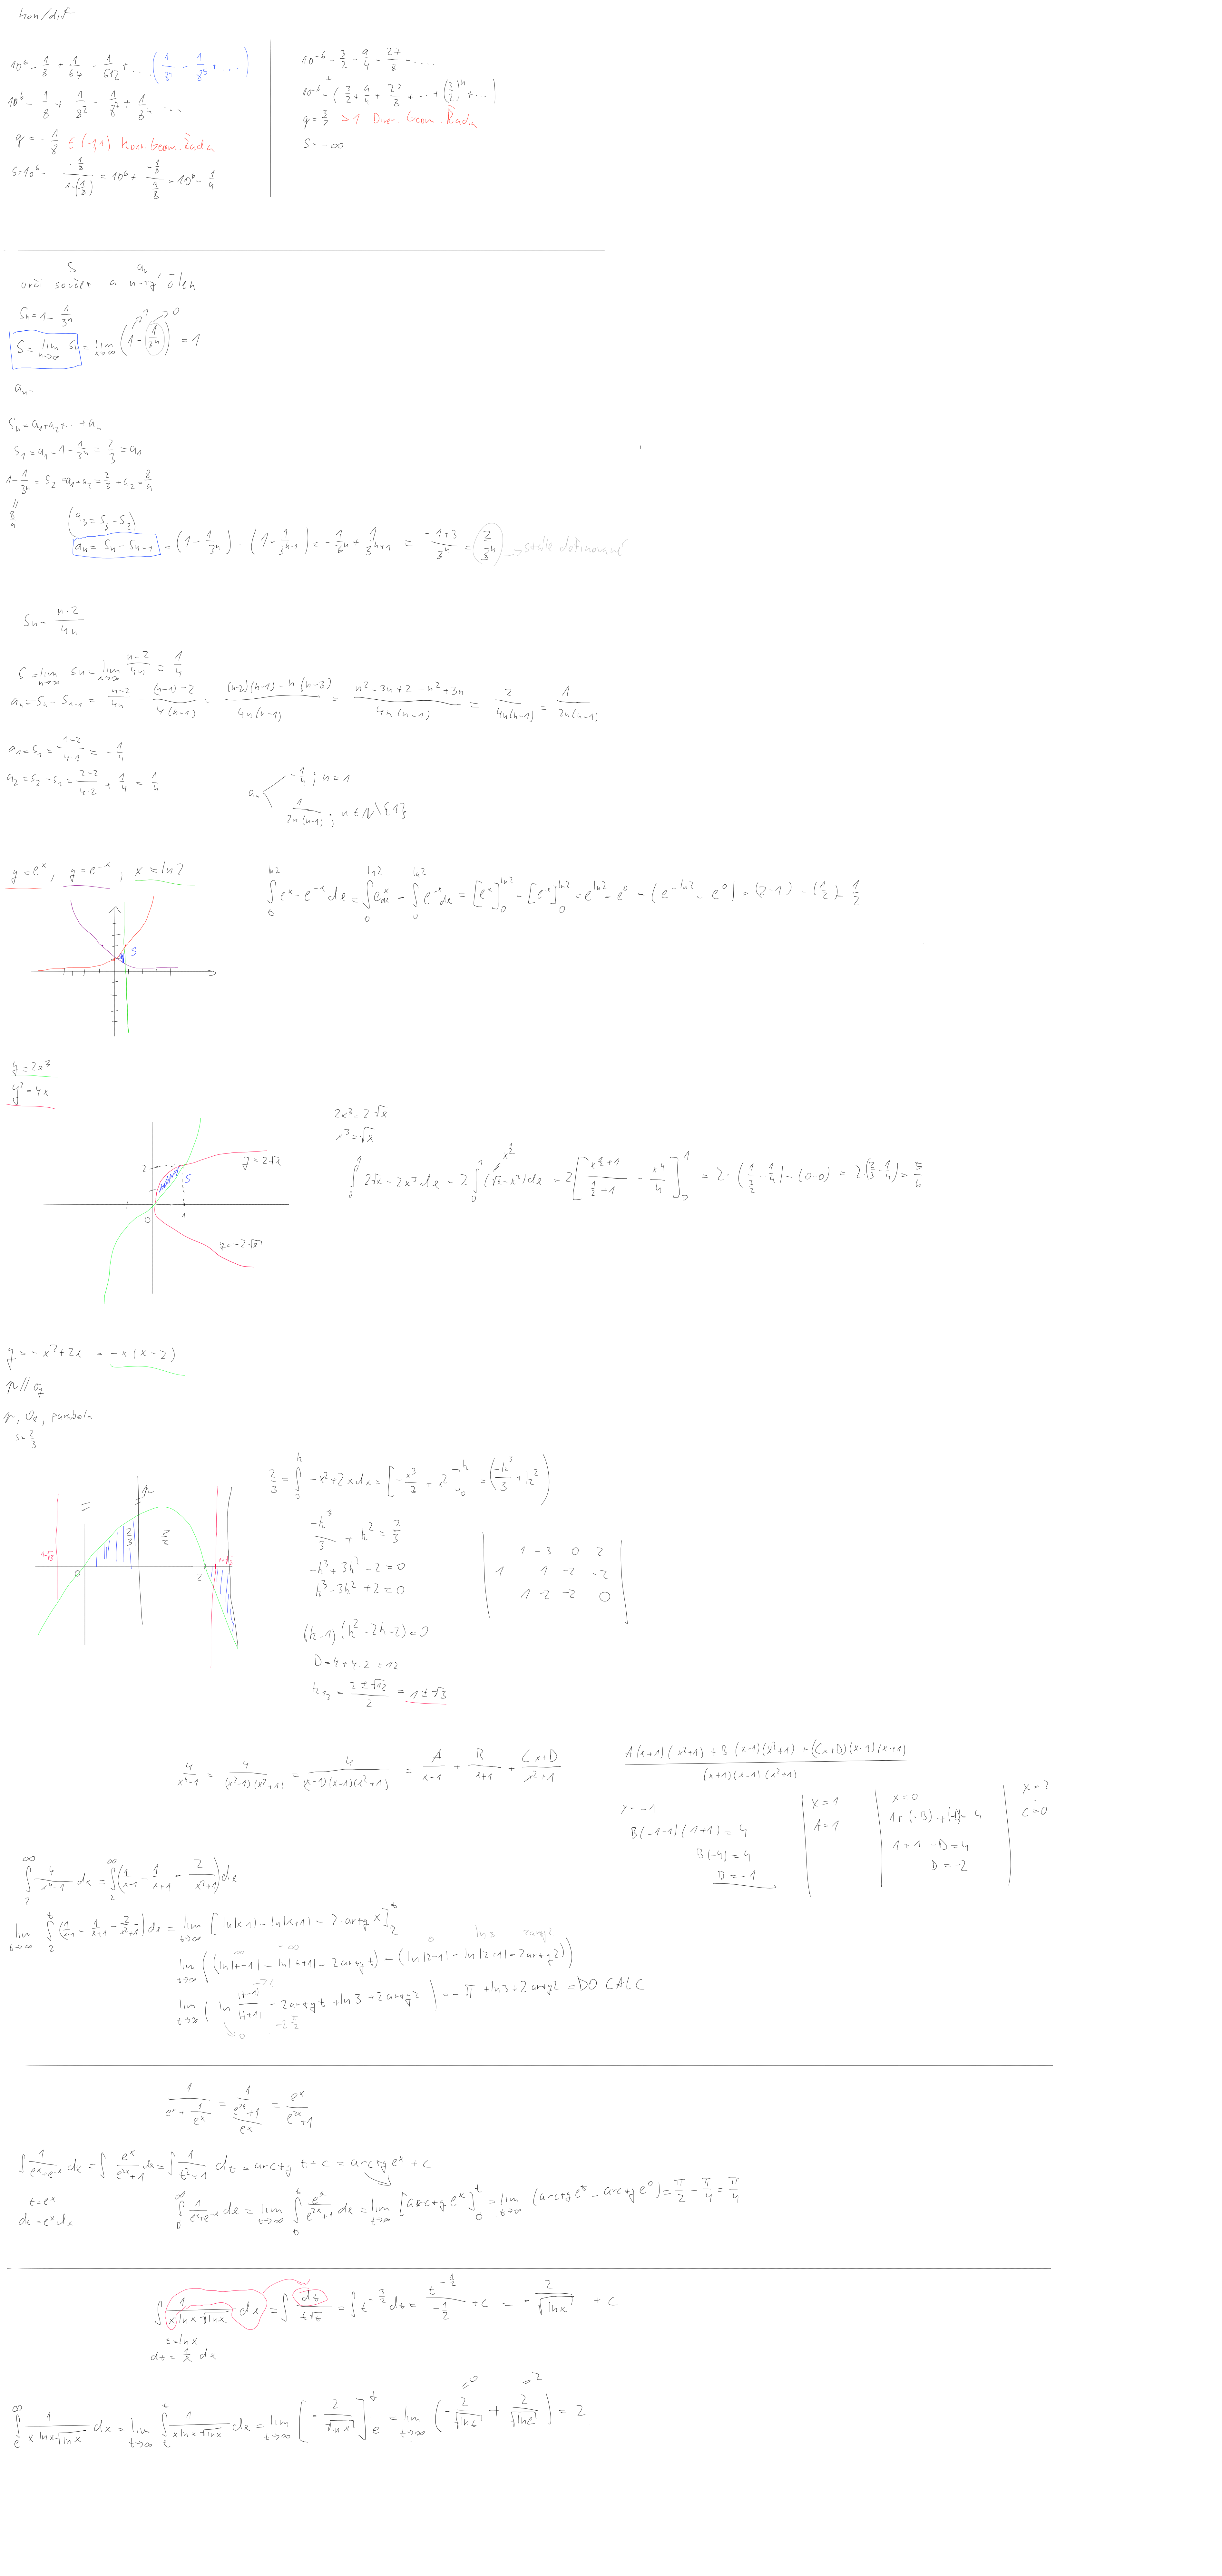 kon/dif
10⁶ - 1/8 + 1/64 - 1/512 + ... (1/8⁴ - 1/8⁵ + ...)
10⁶ - 1/8 + 1/8² - 1/8³ + 1/8⁴ ...
q = -1/8 ∈ (-1,1) Kon. Geom. Řada
S = 10⁶ - (-1/8)/(1-(-1/8)) = 10⁶ + (-1/8)/(9/8) = 10⁶ - 1/9
10⁻⁶ - 3/2 - 9/4 - 27/8 - ....
10⁻⁶ - (3/2 + 9/4 + 27/8 + ... + (3/2)ⁿ + ...)
q = 3/2 > 1 Diver Geom. Řada
S = -∞
S aₙ
urči součet a n-tý člen
Sₙ = 1 - 1/3ⁿ
S = lim n→∞ Sₙ = lim x→∞ (1 - 1/3ⁿ) = 1
1 0
aₙ =
Sₙ = a₁ + a₂ + ... + aₙ
S₁ = a₁ = 1 - 1/3ⁿ = 2/3 = a₁
1 - 1/3ⁿ = S₂ = a₁ + a₂ = 2/3 + a₂ = 8/9
// 8/9
(a₃ = S₃ - S₂)
aₙ = Sₙ - Sₙ₋₁ = (1 - 1/3ⁿ) - (1 - 1/3ⁿ⁻¹) = -1/3ⁿ + 1/3ⁿ⁺¹ = (-1+3)/3ⁿ = 2/3ⁿ → stále definované
Sₙ = (n-2)/4n
S = lim n→∞ Sₙ = lim x→∞ (n-2)/4n = 1/4
aₙ = Sₙ - Sₙ₋₁ = (n-2)/4n - ((n-1)-2)/4(n-1) = ((n-2)(n-1) - n(n-3))/4n(n-1) = (n² - 3n + 2 - n² + 3n)/4n(n-1) = 2/4n(n-1) = 1/2n(n-1)
a₁ = S₁ = (1-2)/4·1 = -1/4
a₂ = S₂ - S₁ = (2-2)/4·2 + 1/4 = 1/4
aₙ < -1/4 ; n = 1
1/2n(n-1) ; n ∈ ℕ\{1}
y = eˣ, y = e⁻ˣ, x = ln2
∫₀^ln2 eˣ - e⁻ˣ dx = ∫₀^ln2 eˣ dx - ∫₀^ln2 e⁻ˣ dx = [eˣ]₀^ln2 - [e⁻ˣ]₀^ln2 = e^ln2 - e⁰ - (e^-ln2 - e⁰) = (2-1) - (1/2) = 1/2
S
y = 2x³
y² = 4x
2x³ = 2√x
x³ = √x
∫₀¹ 2√x - 2x³ dx = 2∫₀¹ (√x - x³) dx = 2[x^(1/2+1)/(1/2+1) - x⁴/4]₀¹ = 2·(1/(3/2) - 1/4) - (0-0) = 2(2/3 - 1/4) = 5/6
x^1/2
y = 2√x
2
S
0 1
y = -2√x
y = -x² + 2x = -x(x-2)
p // o_y
p, oₓ, parabola
S = 2/3
2/3 = ∫₀ᵏ -x² + 2x dx = [-x³/3 + x²]₀ᵏ = (-k³/3 + k²)
-k³/3 + k² = 2/3
-k³ + 3k² - 2 = 0
k³ - 3k² + 2 = 0
1 -3 0 2
1 1 -2 -2
1 -2 -2 0
p
1-√3 2/3 1+√3
0 2
(k-1)(k² - 2k - 2) = 0
D = 4 + 4·2 = 12
k₁,₂ = (2 ± √12)/2 = 1 ± √3
4/(x⁴-1) = 4/((x²-1)(x²+1)) = 4/((x-1)(x+1)(x²+1)) = A/(x-1) + B/(x+1) + (Cx+D)/(x²+1)
(A(x+1)(x²+1) + B(x-1)(x²+1) + (Cx+D)(x-1)(x+1))/((x+1)(x-1)(x²+1))
x = -1
B(-1-1)(1+1) = 4
B(-4) = 4
B = -1
x = 1
A = 1
x = 0
A + (-B) + (-D) = 4
1 + 1 - D = 4
D = -2
x = 2
⋮
C = 0
∫₂^∞ 4/(x⁴-1) dx = ∫₂^∞ (1/(x-1) - 1/(x+1) - 2/(x²+1)) dx
lim t→∞ ∫₂ᵗ (1/(x-1) - 1/(x+1) - 2/(x²+1)) dx = lim t→∞ [ln|x-1| - ln|x+1| - 2·arctg x]₂ᵗ
∞ -∞ 0 ln3 2arctg2
lim t→∞ ((ln|t-1| - ln|t+1| - 2arctg t) - (ln|2-1| - ln|2+1| - 2arctg2))
lim t→∞ (ln |t-1|/|t+1| - 2arctg t + ln3 + 2arctg2) = -π + ln3 + 2arctg2 = DO CALC
→1 → 0 -2 π/2
1/(eˣ + 1/eˣ) = 1/((e²ˣ+1)/eˣ) = eˣ/(e²ˣ+1)
∫ 1/(eˣ+e⁻ˣ) dx = ∫ eˣ/(e²ˣ+1) dx = ∫ 1/(t²+1) dt = arctg t + c = arctg eˣ + c
t = eˣ
dt = eˣ dx
∫₀^∞ 1/(eˣ+e⁻ˣ) dx = lim t→∞ ∫₀ᵗ eˣ/(e²ˣ+1) dx = lim t→∞ [arctg eˣ]₀ᵗ = lim t→∞ (arctg eᵗ - arctg e⁰) = π/2 - π/4 = π/4
∫ 1/(x ln x √ln x) dx = ∫ dt/(t√t) = ∫ t^(-3/2) dt = t^(-1/2)/(-1/2) + c = -2/√ln x + c
t = ln x
dt = 1/x dx
∫ₑ^∞ 1/(x ln x √ln x) dx = lim t→∞ ∫ₑᵗ 1/(x ln x √ln x) dx = lim t→∞ [-2/√ln x]ₑᵗ = lim t→∞ (-2/√ln t + 2/√ln e) = 2
=0 =2